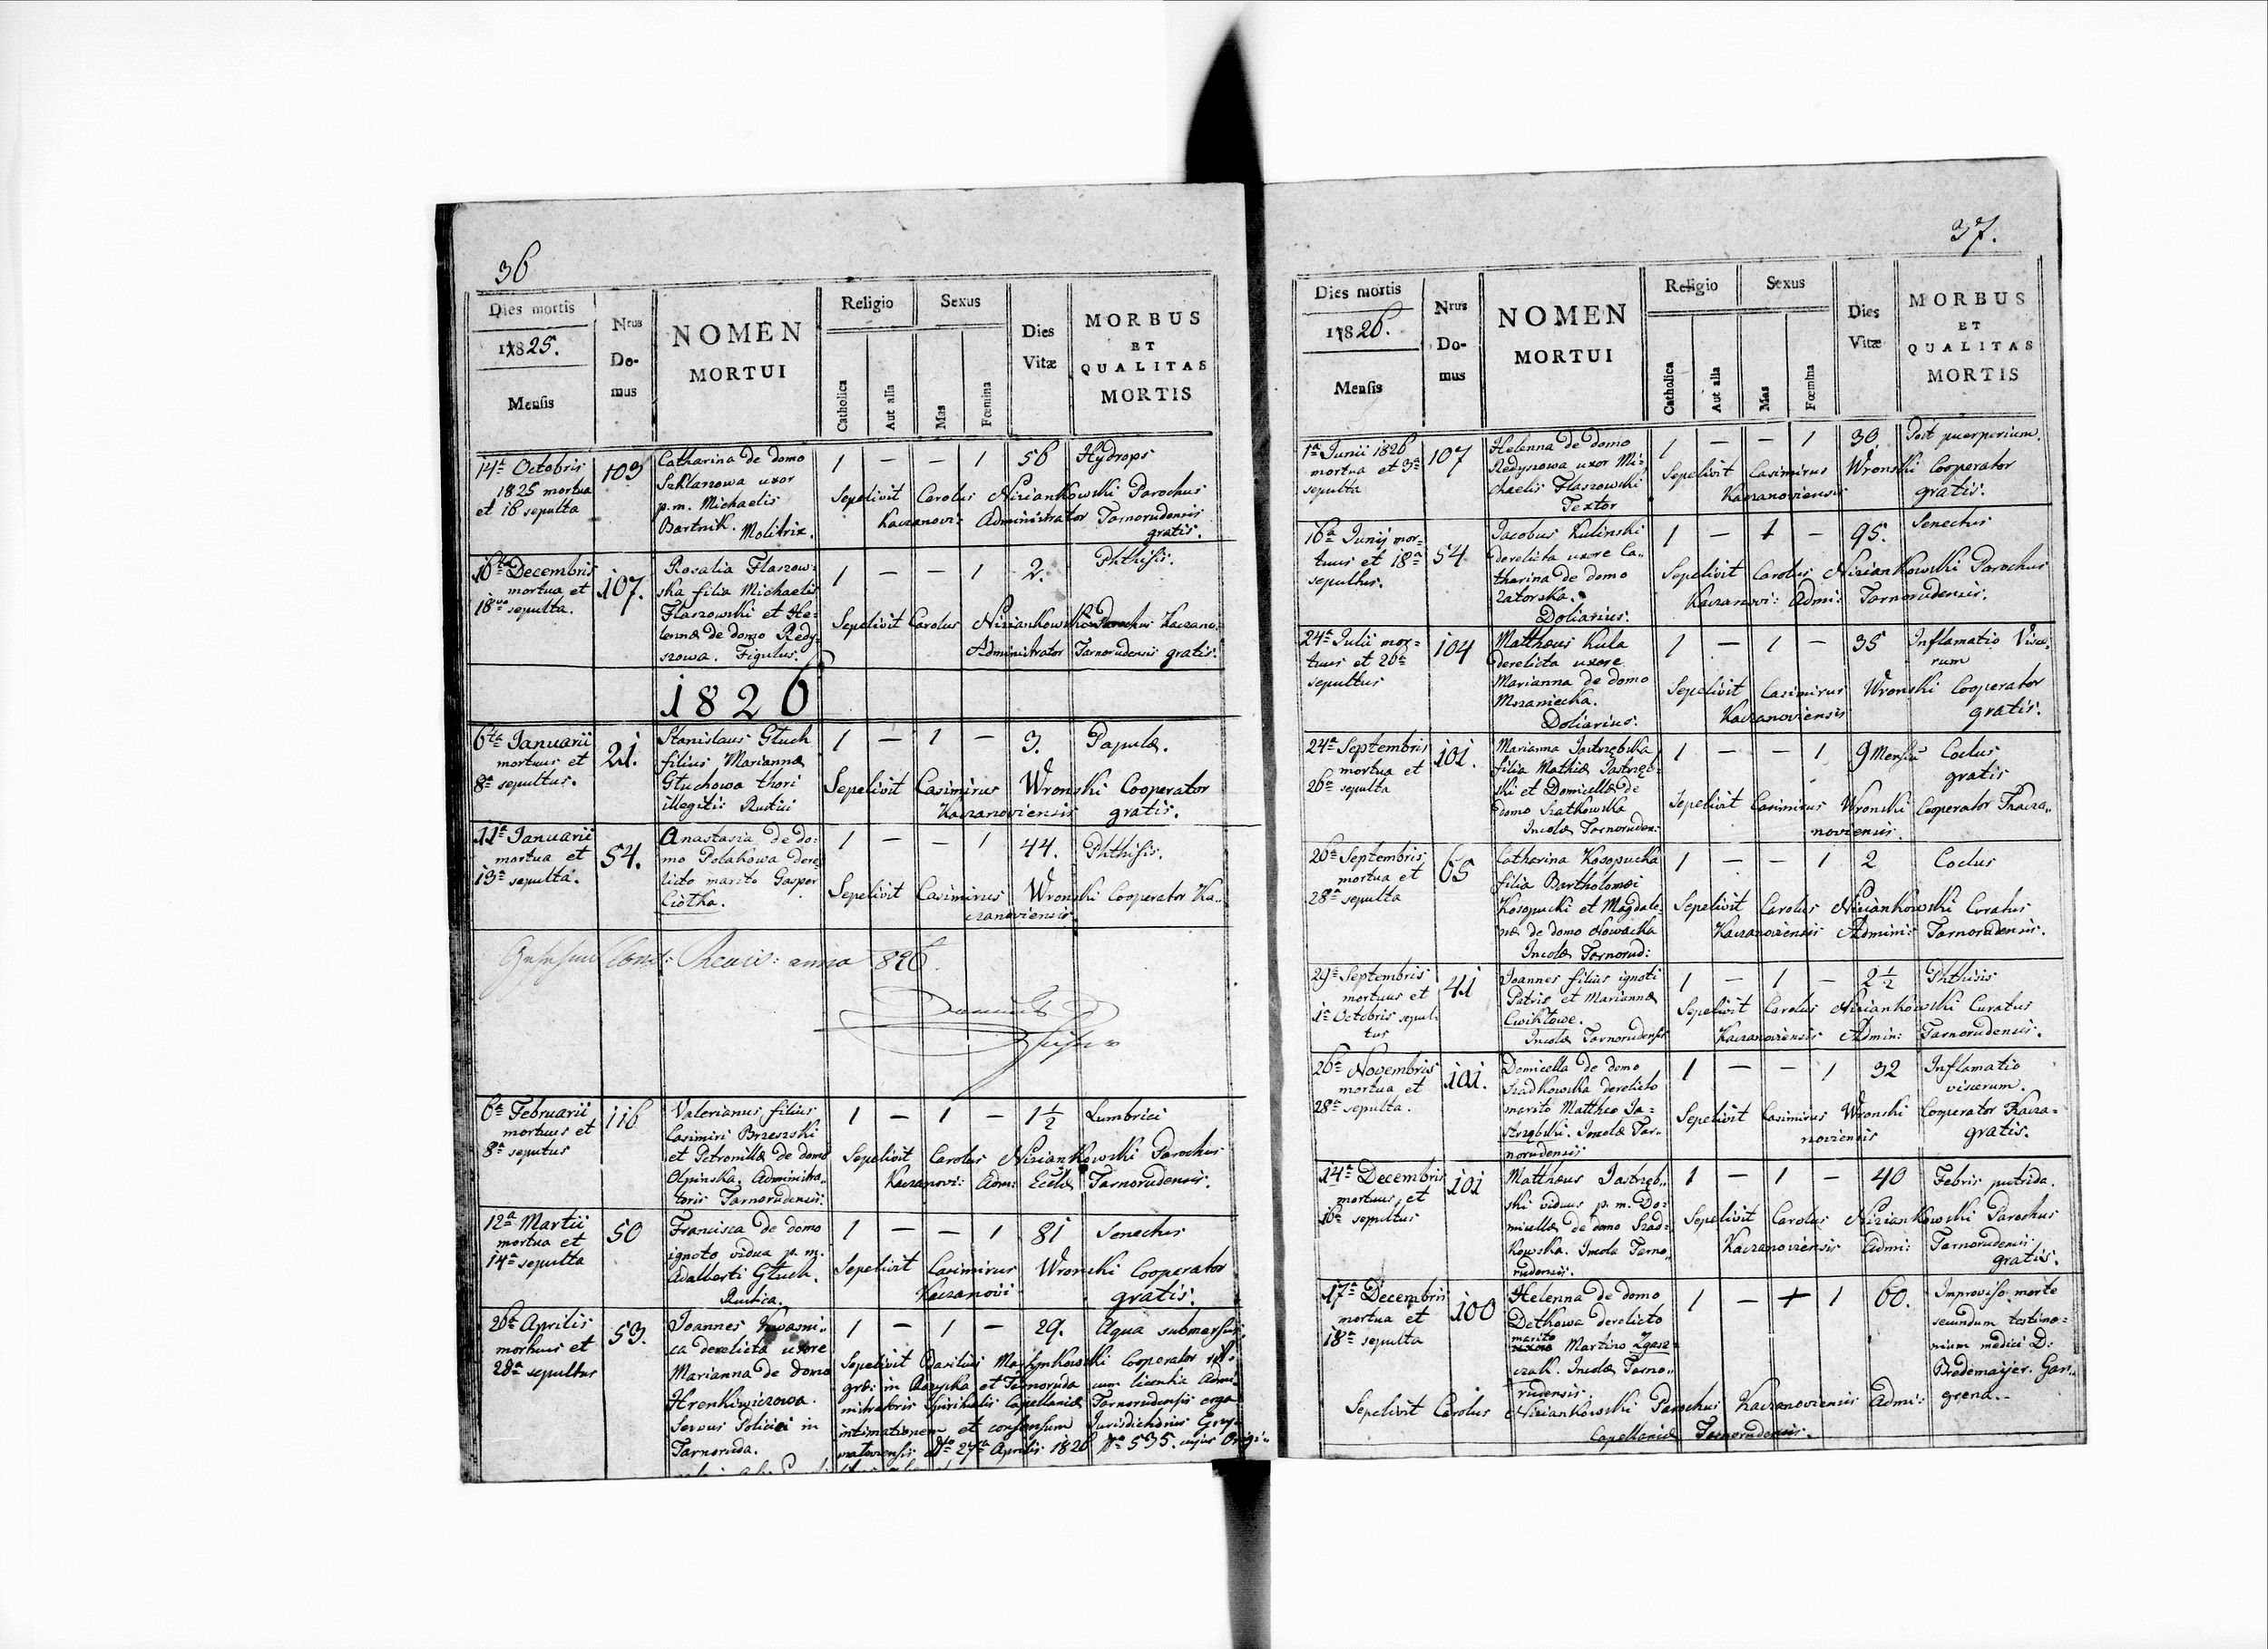 36
Dies mortis
1825.
Mensis
Nrus
Do-
mus
NOMEN
MORTUI
Religio
Catholica
Aut alia
Sexus
Mas
Fœmina
Dies
Vitæ
MORBUS
ET
QUALITAS
MORTIS
14ta Octobris
1825 mortua
et 16 sepulta
103
Catharina de domo
Szklarzowa uxor
p.m. Michaelis
Bartnik. Molitrix.
1 — — 1 56 Hydrops
Sepelivit Carolus Niziankowski Parochus
Kaczanovi: Administrator Tarnorudensis
gratis.
16ta Decembris
mortua et
18va sepulta.
107.
Rosalia Flaszow-
ska filia Michaelis
Flaszowski et He-
lennæ de domo Redy-
szowa. Figulus.
1 — — 1 2. Phthisis.
Sepelivit Carolus Niziankowski Parochus Kaczano:
Administrator Tarnorudensis gratis.
1826
6ta Januarii
mortuus et
8a sepultus.
21.
Stanislaus Głuch
filius Mariannæ
Głuchowa thori
illegitii Rustici
1 — 1 — 3. Papulæ.
Sepelivit Casimirus Wronski Cooperator
Kaczanoviensis gratis.
11a Januarii
mortua et
13a sepulta.
54.
Anastasia de do-
mo Polakowa dere-
licto marito Gasper
Ciotka.
1 — — 1 44. Phthisis.
Sepelivit Casimirus Wronski Cooperator Ka-
czanoviensis.
anno 1826.
6a Februarii
mortuus et
8a seputus
116
Valerianus filius
Casimiri Brzeszski
et Petronillæ de domo
Olpinska. Administra-
toris Tarnorudensis.
1 — 1 — 1 1/2 Lumbrici
Sepelivit Carolus Niziankowski Parochus
Kaczanovi: Adm: Eccle Tarnorudensis.
12a Martii
mortua et
14a sepulta
50
Francisca de domo
ignoto vidua p. m.
Adalberti Głuch.
Rustica.
1 — — 1 81 Senectus
Sepelivit Casimirus Wronski Cooperator
Kaczanovi gratis.
26ta Aprilis
mortuus et
28a sepultus
53.
Joannes Kwasni-
ca derelicta uxore
Marianna de domo
Hrenkiwiczowa.
Servus Policiei in
Tarnoruda.
1 — 1 — 29. Aqua submersus.
Sepelivit Basilius Cooperator
in et Tarnoruda cum licentia Admi-
nistratoris Spiritualis Capellaniæ Tarnorudensis erga
intimationem et consensum Jurisdictionis Grzy-
matoviensis dto 27a Aprilis 1826 No 535. cujus Origi-
37.
Dies mortis
1826.
Mensis
Nrus
Do-
mus
NOMEN
MORTUI
Religio
Catholica
Aut alia
Sexus
Mas
Fœmina
Dies
Vitæ
MORBUS
ET
QUALITAS
MORTIS
1a Junii 1826
mortua et 3a
sepulta
107
Helenna de domo
Redyszowa uxor Mi-
chaelis Flaszowski
Textor
1 — — 1 30 Post puerperium.
Sepelivit Casimirus Wronski Cooperator
Kaczanoviensis gratis.
16a Junij mor-
tuus et 18a
sepultus.
54
Jacobus Kulinski
derelicta uxore Ca-
tharina de domo
Zatorska.
Doliarius.
1 — 1 — 95. Senectus
Sepelivit Carolus Niziankowski Parochus
Kaczanovi: Admi: Tarnorudensis.
24a Julii mor-
tuus et 26ta
sepultus
104
Matthæus Kula
derelicta uxore
Marianna de domo
Mszaniecka.
Doliarius.
1 — 1 — 35 Inflamatio Visce-
rum
Sepelivit Casimirus Wronski Cooperator
Kaczanoviensis gratis.
24a Septembris
mortua et
26ta sepulta
101.
Marianna Jastrzębska
filia Mathiæ Jastrzęb-
ski et Domicellæ de
domo Szatkowska
Incolæ Tarnoruden:
1 — — 1 9 Mensiu Coclus
gratis
Sepelivit Casimirus Wronski Cooperator Kacza-
noviensis.
26ta Septembris
mortua et
28a sepulta
65
Catharina Kosopucka
filia Bartholomæi
Kosopucki et Magdale-
næ de domo Nowacka
Incolæ Tarnorud:
1 — — 1 2 Coclus
Sepelivit Carolus Niziankowski Curatus
Kaczanoviensis Admini: Tarnorudensis.
29a Septembris
mortuus et
1a Octobris sepul-
tus
41
Joannes filius ignoti
Patris et Mariannæ
Cwiktowe.
Incolæ Tarnorudensis
1 — 1 — 2 1/2 Phthisis
Sepelivit Carolus Niziankowski Curatus
Kaczanoviensis Admin: Tarnorudensis.
26ta Novembris
mortua et
28a sepulta.
101.
Domicella de domo
Szadkowska derelicto
marito Mattheo Ja-
strzębski. Incolæ Tar-
norudensis
1 — — 1 32 Inflamatio
viscerum.
Sepelivit Casimirus Wronski Cooperator Kacza-
noviensis gratis.
14a Decembris
mortuus et
16a sepultus
101
Matthæus Jastrzęb-
ski viduus p. m. Do-
micellæ de domo Szad-
kowska. Incola Tarno-
rudensis.
1 — 1 — 40 Febris putrida.
Sepelivit Carolus Niziankowski Parochus
Kaczanoviensis Admi: Tarnorudensis
gratis.
17a Decembris
mortua et
18a sepulta
100
Helenna de domo
Dethowa derelicto
marito
uxore Martino Zgasz-
czak. Incolæ Tarno-
rudensis.
1 — + 1 60. Improviso morte
secundum testimo-
nium medici D:
Bredemaijer. Gan-
grena.
Sepelivit Carolus Niziankowski Parochus Kaczanoviensis Admi:
Capellaniæ Tarnorudensis.